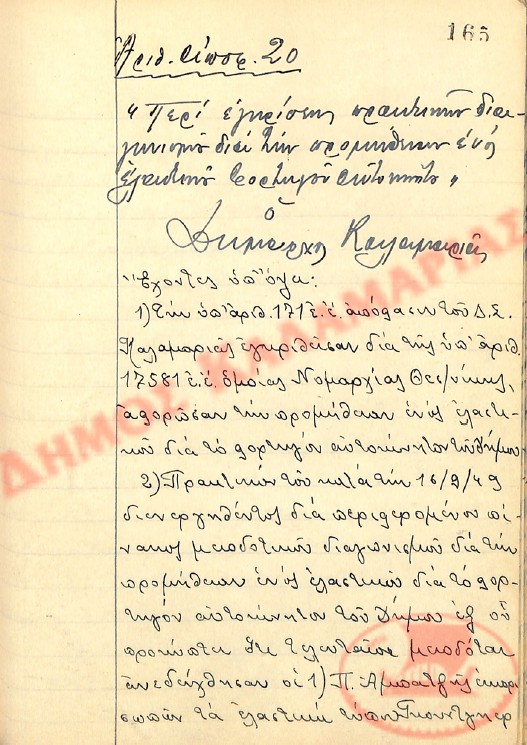 165
Ἀριθ. ἀποφ. 20
„ Περί ἐγκρίσεως πρακτικῶν δια-
γωνισμοῦ διά τήν προμήθειαν ἑνός
ἐλαστικοῦ φορτηγοῦ αὐτοκινήτου „
Ὁ
Δήμαρχος Καλαμαριᾶς
Ἔχοντες ὑπ' ὄψει:
1) Τήν ὑπ' ἀριθ. 171 ἐ.ἔ. ἀπόφασιν τοῦ Δ.Σ.
Καλαμαριᾶς ἐγκριθεῖσαν διά τῆς ὑπ' ἀριθ.
17581 ἐ.ἔ. ὁμοίας Νομαρχίας Θεσ/νίκης,
ἀφορῶσαν τήν προμήθειαν ἑνός ἐλαστι-
κοῦ διά τό φορτηγόν αὐτοκίνητον τοῦ Δήμου
2) Πρακτικόν τοῦ κατά τήν 16/9/49
διενεργηθέντος διά περιφερομένου πί-
νακος μειοδοτικοῦ διαγωνισμοῦ διά τήν
προμήθειαν ἑνός ἐλαστικοῦ διά τό φορ-
τηγόν αὐτοκίνητον τοῦ Δήμου ἐξ οὗ
προκύπτει ὅτι τελευταῖοι μειοδόται
ἀνεδείχθησαν οἱ 1) Π. Ἀμπατζῆς ἐκπρο
σωπῶν τά ἐλαστικά τύπου Γκουντγήερ
ΔΗΜΟΣ ΚΑΛΑΜΑΡΙΑΣ